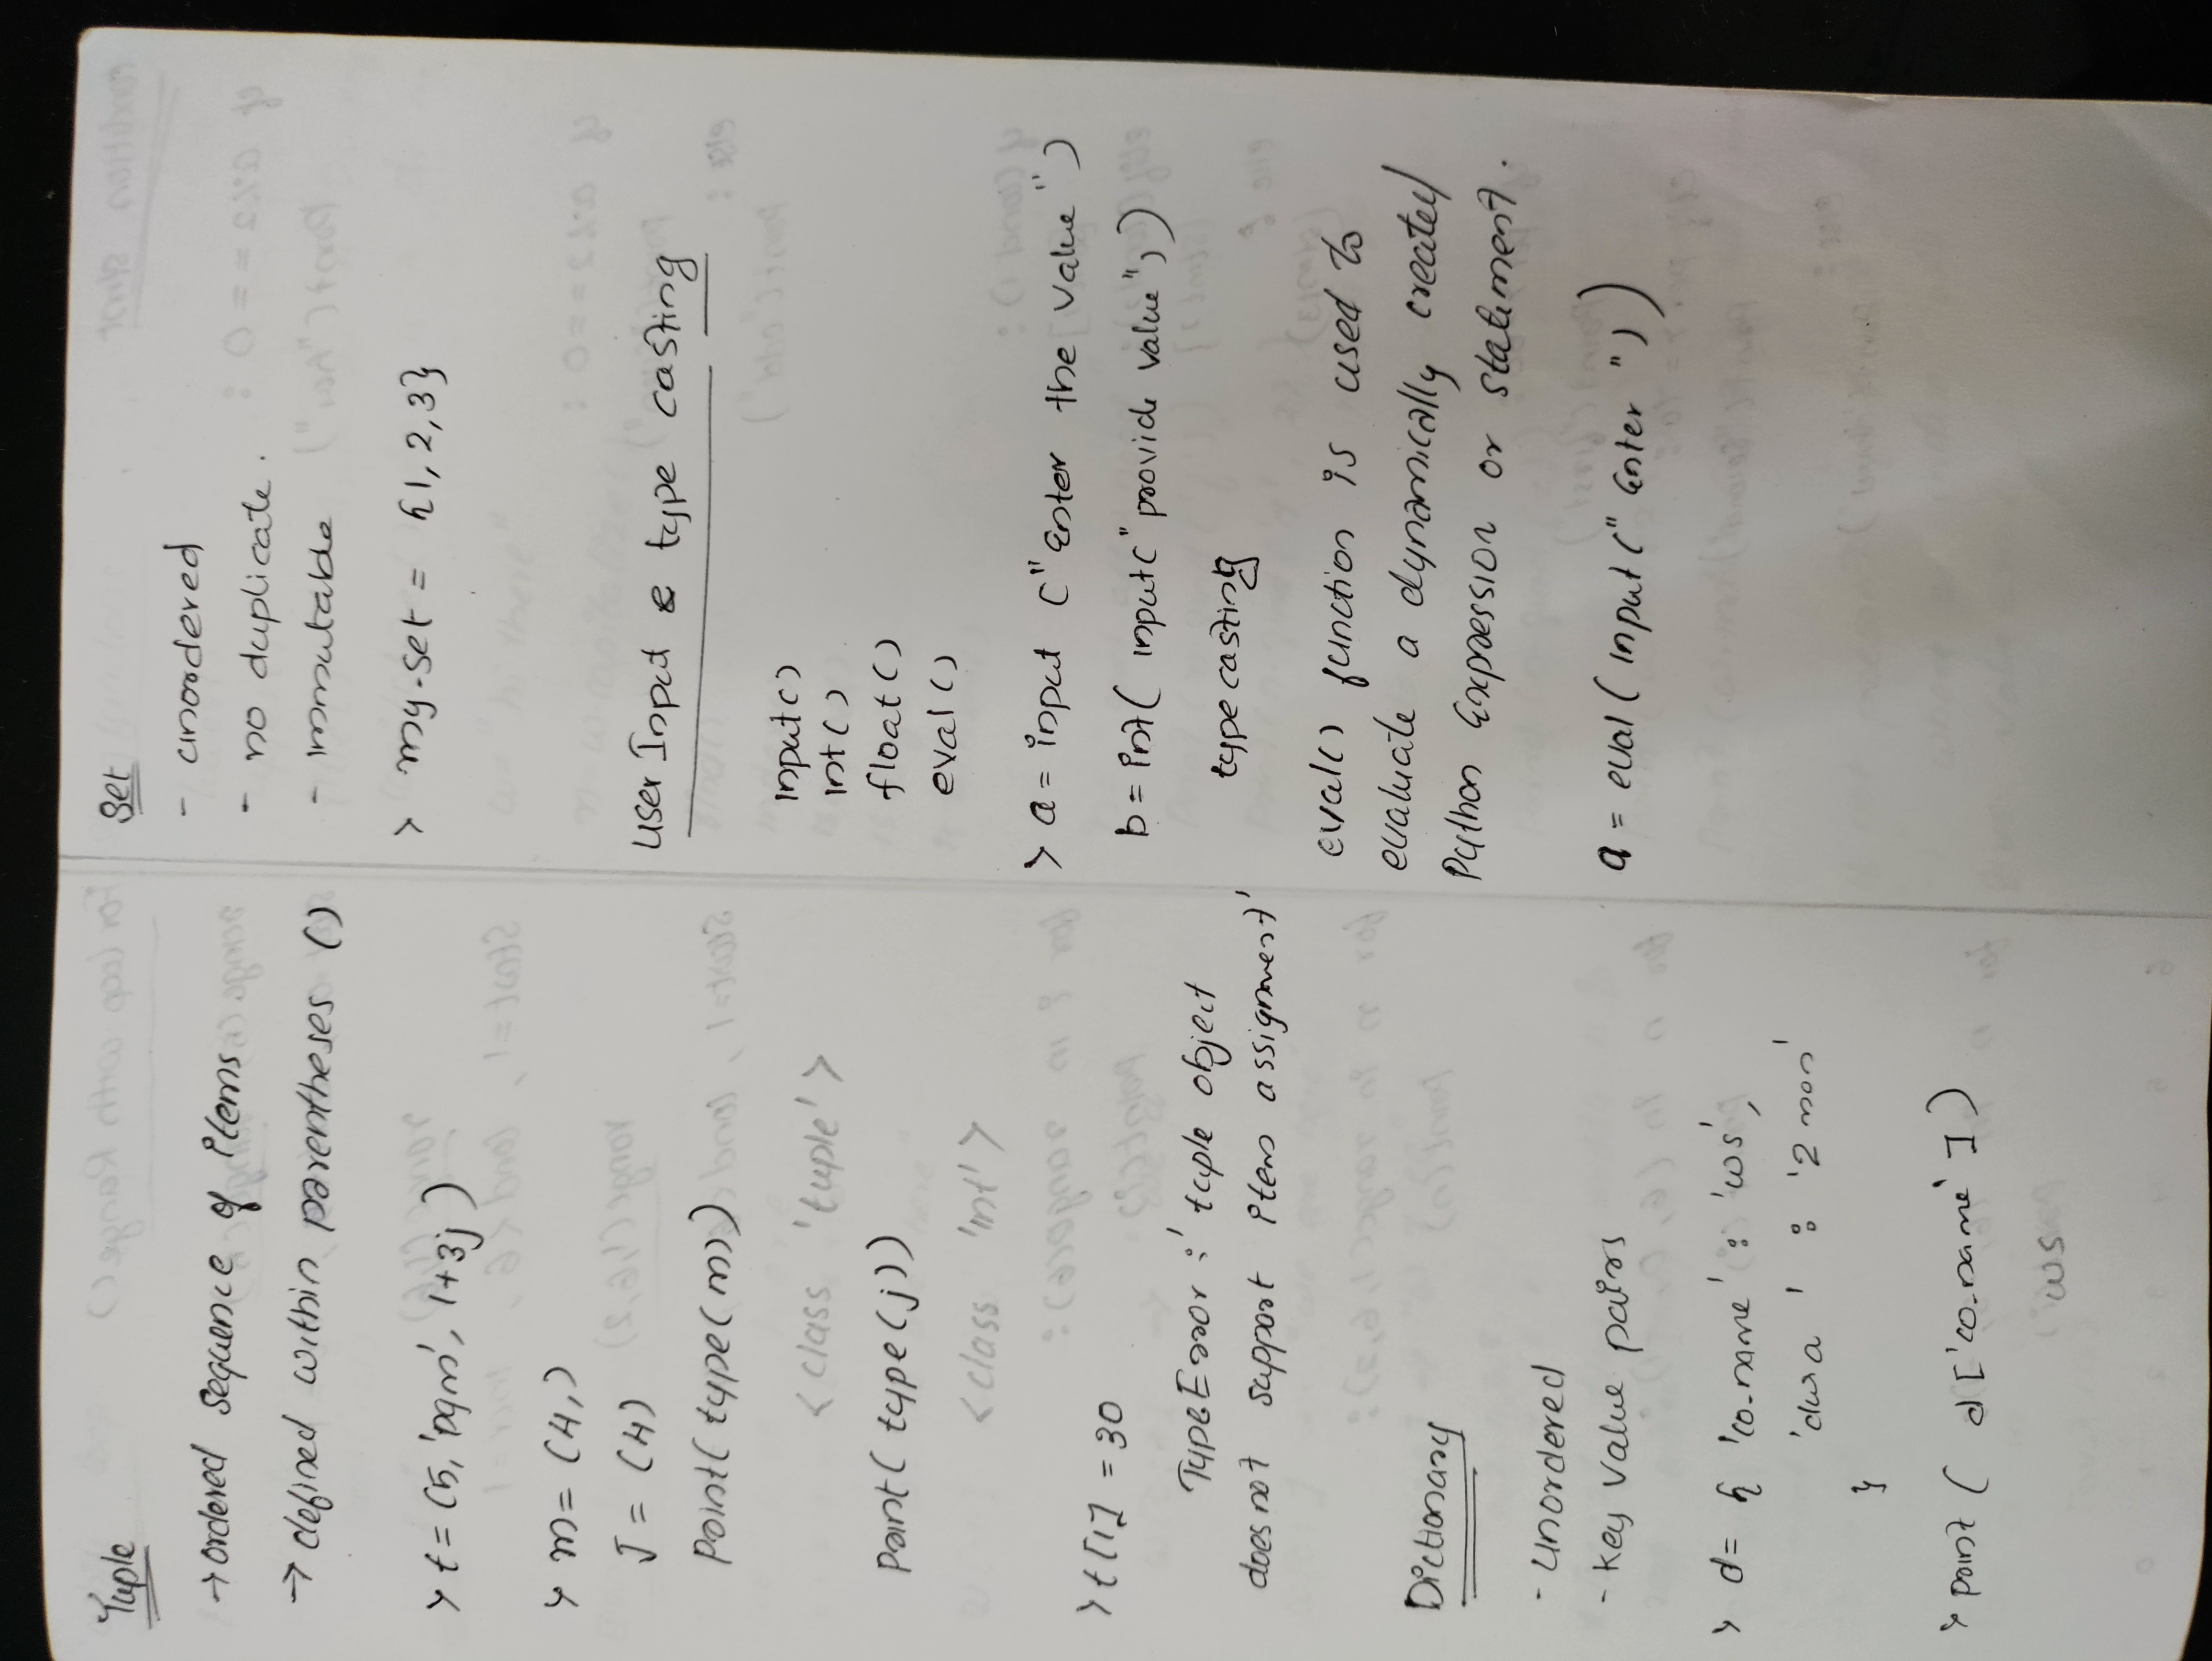 Tuple
→ ordered sequence of items
→ defined within parentheses ()
> t = (5, 'pgm', 1+3j)
> m = (4,)
J = (4)
Print(type(m))
<class 'tuple'>
Print(type(j))
<class 'int'>
> t[1] = 30
TypeError : 'tuple object
does not support item assignment'
Dictionary
- Unordered
- Key Value pairs
> d = { 'co_name' : 'ws',
'dura' : '2 mon'
}
> print ( d['co_name'])
ws
Set
- unordered
- no duplicate.
- Immutable
> my_set = {1, 2, 3}
User Input & type casting
Input()
Int()
float()
eval()
> a = input ("Enter the Value")
b = int( input("provide value"))
type casting
eval() function is used to
evaluate a dynamically created
Python Expression or statement.
a = eval(input("Enter"))